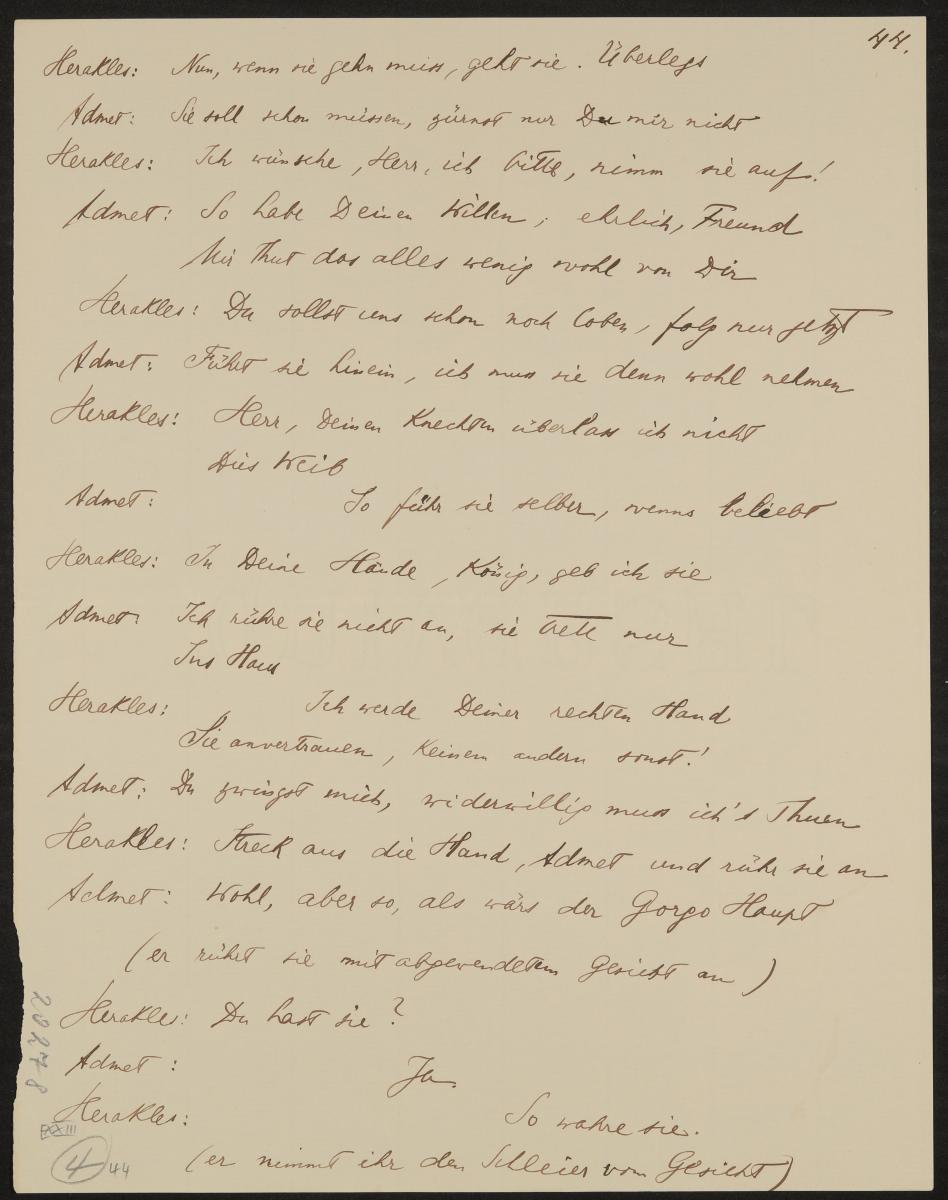 44.
Herakles: Nun, wenn sie gehn muss, geht sie. Überlegs
Admet: Sie soll schon müssen, zürnst nur Du mir nicht
Herakles: Ich wünsche, Herr, ich bitte, nimm sie auf!
Admet: So habe Deinen Willen, ehrlich, Freund
Mir thut das alles wenig wohl von Dir
Herakles: Du sollst uns schon noch loben, folg nur jetzt
Admet: Führt sie hinein, ich muss sie denn wohl nehmen
Herakles: Herr, Deinen Knechten überlass ich nicht
Dies Weib
Admet: So führ sie selber, wenns beliebt
Herakles: In Deine Hände, König, geb ich sie
Admet: Ich rühre sie nicht an, sie trete nur
Ins Haus
Herakles: Ich werde Deiner rechten Hand
Sie anvertrauen, Keinem andern sonst!
Admet: Du zwingst mich, widerwillig muss ich's Thuen
Herakles: Streck aus die Hand, Admet und rühr sie an
Admet: Wohl, aber so, als wärs der Gorgo Haupt
(er rührt sie mit abgewendetem Gesicht an)
Herakles: Du hast sie?
Admet: Ja.
Herakles: So wahre sie.
(er nimmt ihr den Schleier vom Gesicht)
20278
4 44